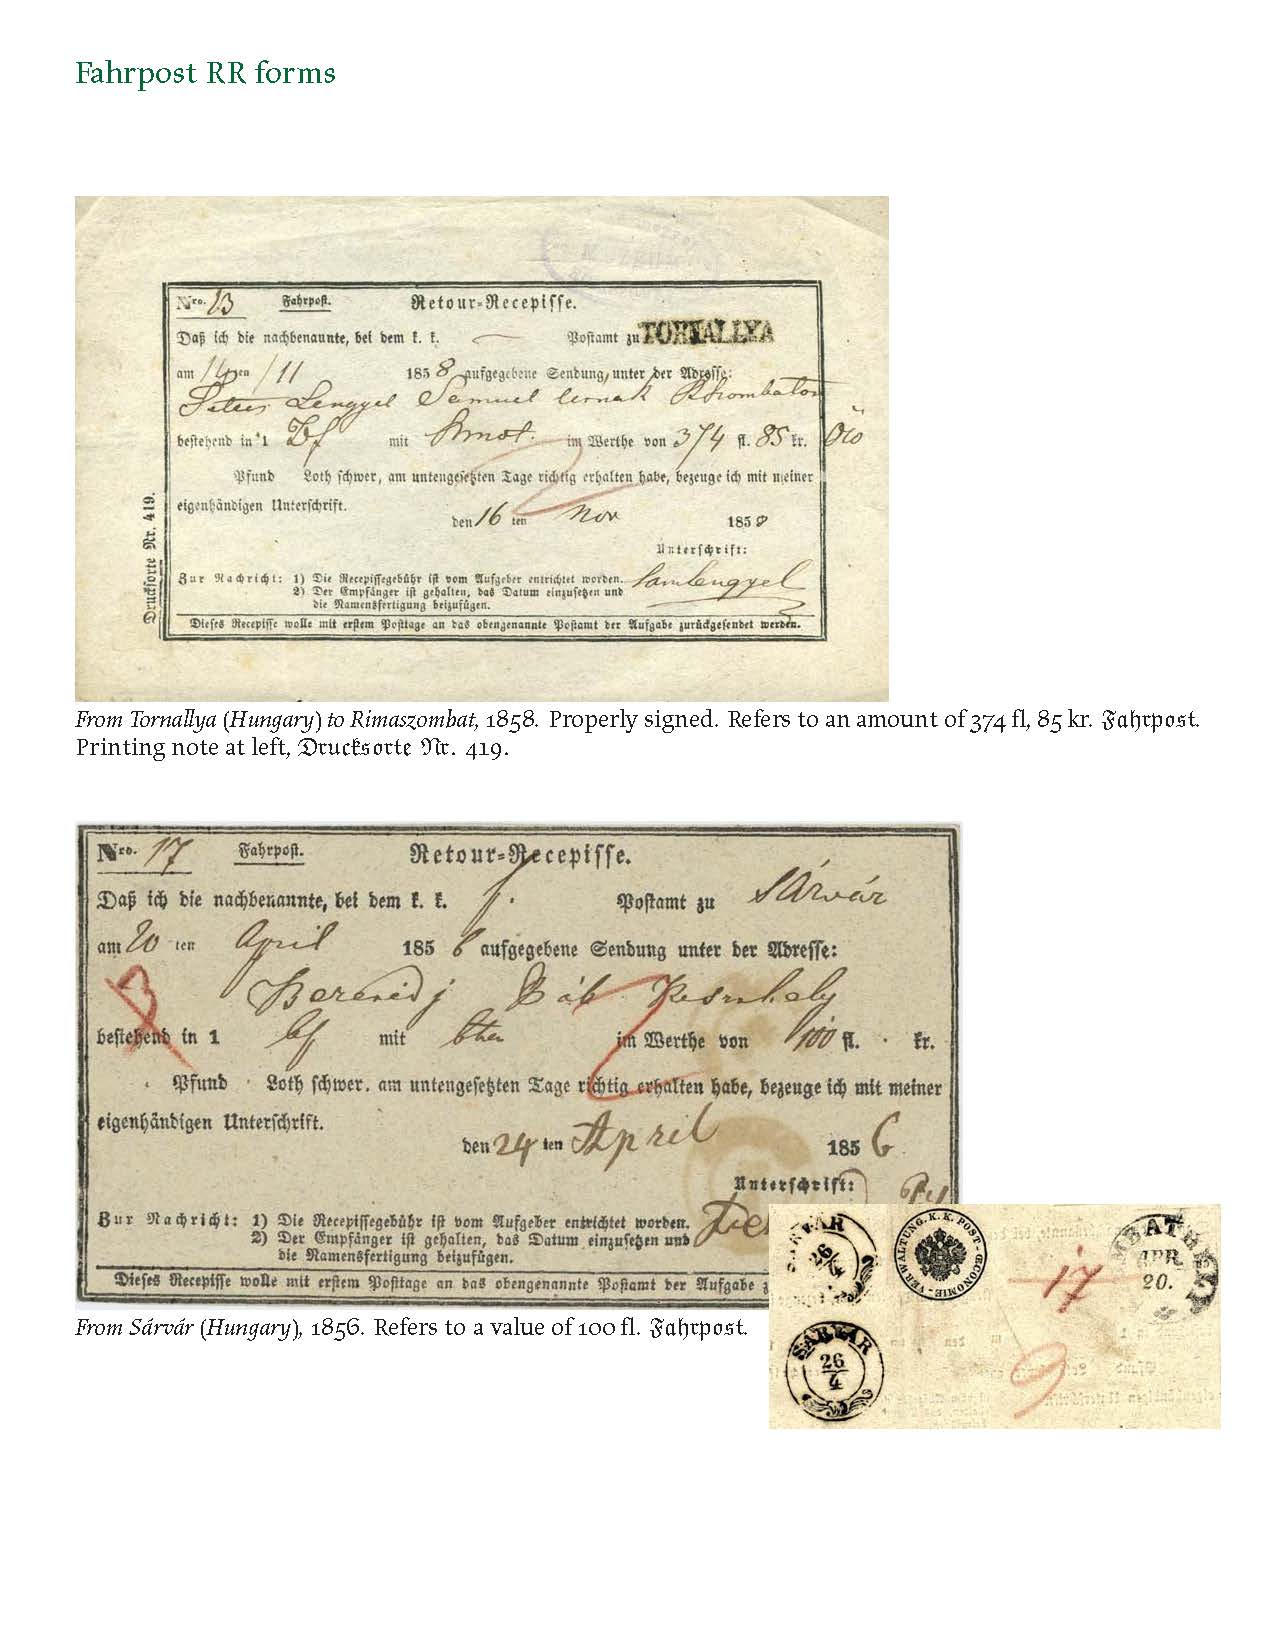 Fahrpost RR forms
Nro. 13 Fahrpost. Retour-Recepisse.
Daß ich die nachbenannte, bei dem k. k. Postamt zu TORNALLYA
am 14ten /11 1858 aufgegebene Sendung unter der Adresse:
Lengyel Samuel
bestehend in 1 Bf mit im Werthe von 374 fl. 85 kr.
Pfund Loth schwer, am untengesetzten Tage richtig erhalten habe, bezeuge ich mit meiner
eigenhändigen Unterschrift.
den 16 ten Nov 1858
Unterschrift:
Zur Nachricht: 1) Die Recepissegebühr ist vom Aufgeber entrichtet worden.
2) Der Empfänger ist gehalten, das Datum einzusetzen und
die Namensfertigung beizufügen.
Dieses Recepisse wolle mit erstem Posttage an das obengenannte Postamt der Aufgabe zurückgesendet werden.
Drucksorte Nr. 419.
From Tornallya (Hungary) to Rimaszombat, 1858. Properly signed. Refers to an amount of 374 fl, 85 kr. Fahrpost.
Printing note at left, Drucksorte Nr. 419.
Nro. 17 Fahrpost. Retour-Recepisse.
Daß ich die nachbenannte, bei dem k. k. Postamt zu Sárvár
am 20 ten April 1856 aufgegebene Sendung unter der Adresse:
bestehend in 1 Bf mit im Werthe von 100 fl. kr.
Pfund Loth schwer, am untengesetzten Tage richtig erhalten habe, bezeuge ich mit meiner
eigenhändigen Unterschrift.
den 24 ten April 1856
Unterschrift:
Zur Nachricht: 1) Die Recepissegebühr ist vom Aufgeber entrichtet worden.
2) Der Empfänger ist gehalten, das Datum einzusetzen und
die Namensfertigung beizufügen.
Dieses Recepisse wolle mit erstem Posttage an das obengenannte Postamt der Aufgabe
From Sárvár (Hungary), 1856. Refers to a value of 100 fl. Fahrpost.
SÁRVÁR
26/4
VERWALTUNG. K. K. POST-OECONOMIE-
17
APR
20.
SÁRVÁR
26/4
9